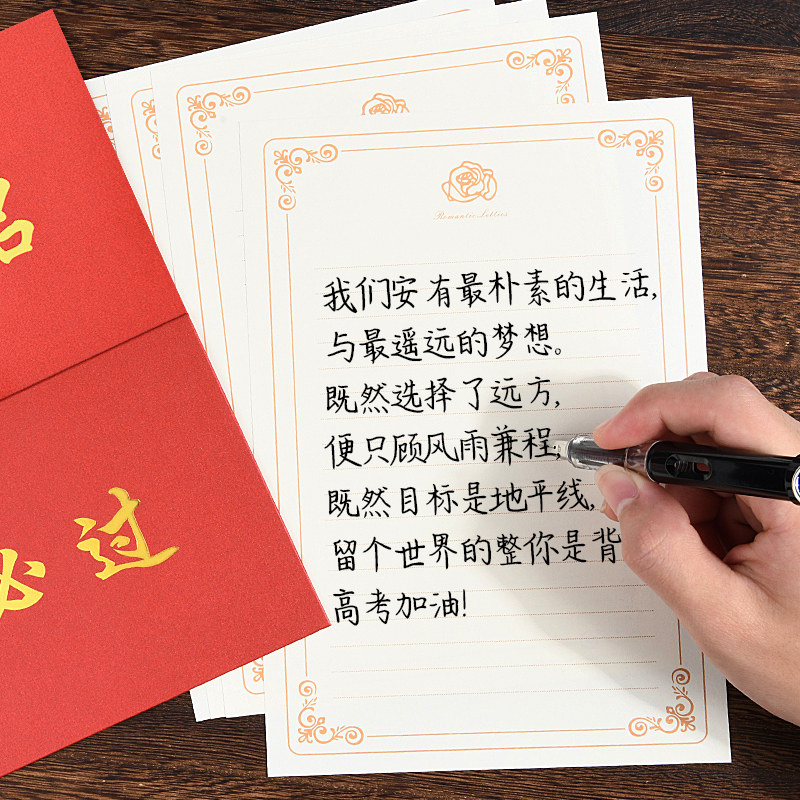 Romantic Letters
我们安有最朴素的生活,
与最遥远的梦想。
既然选择了远方,
便只顾风雨兼程,
既然目标是地平线,
留个世界的整你是背
高考加油!
必过